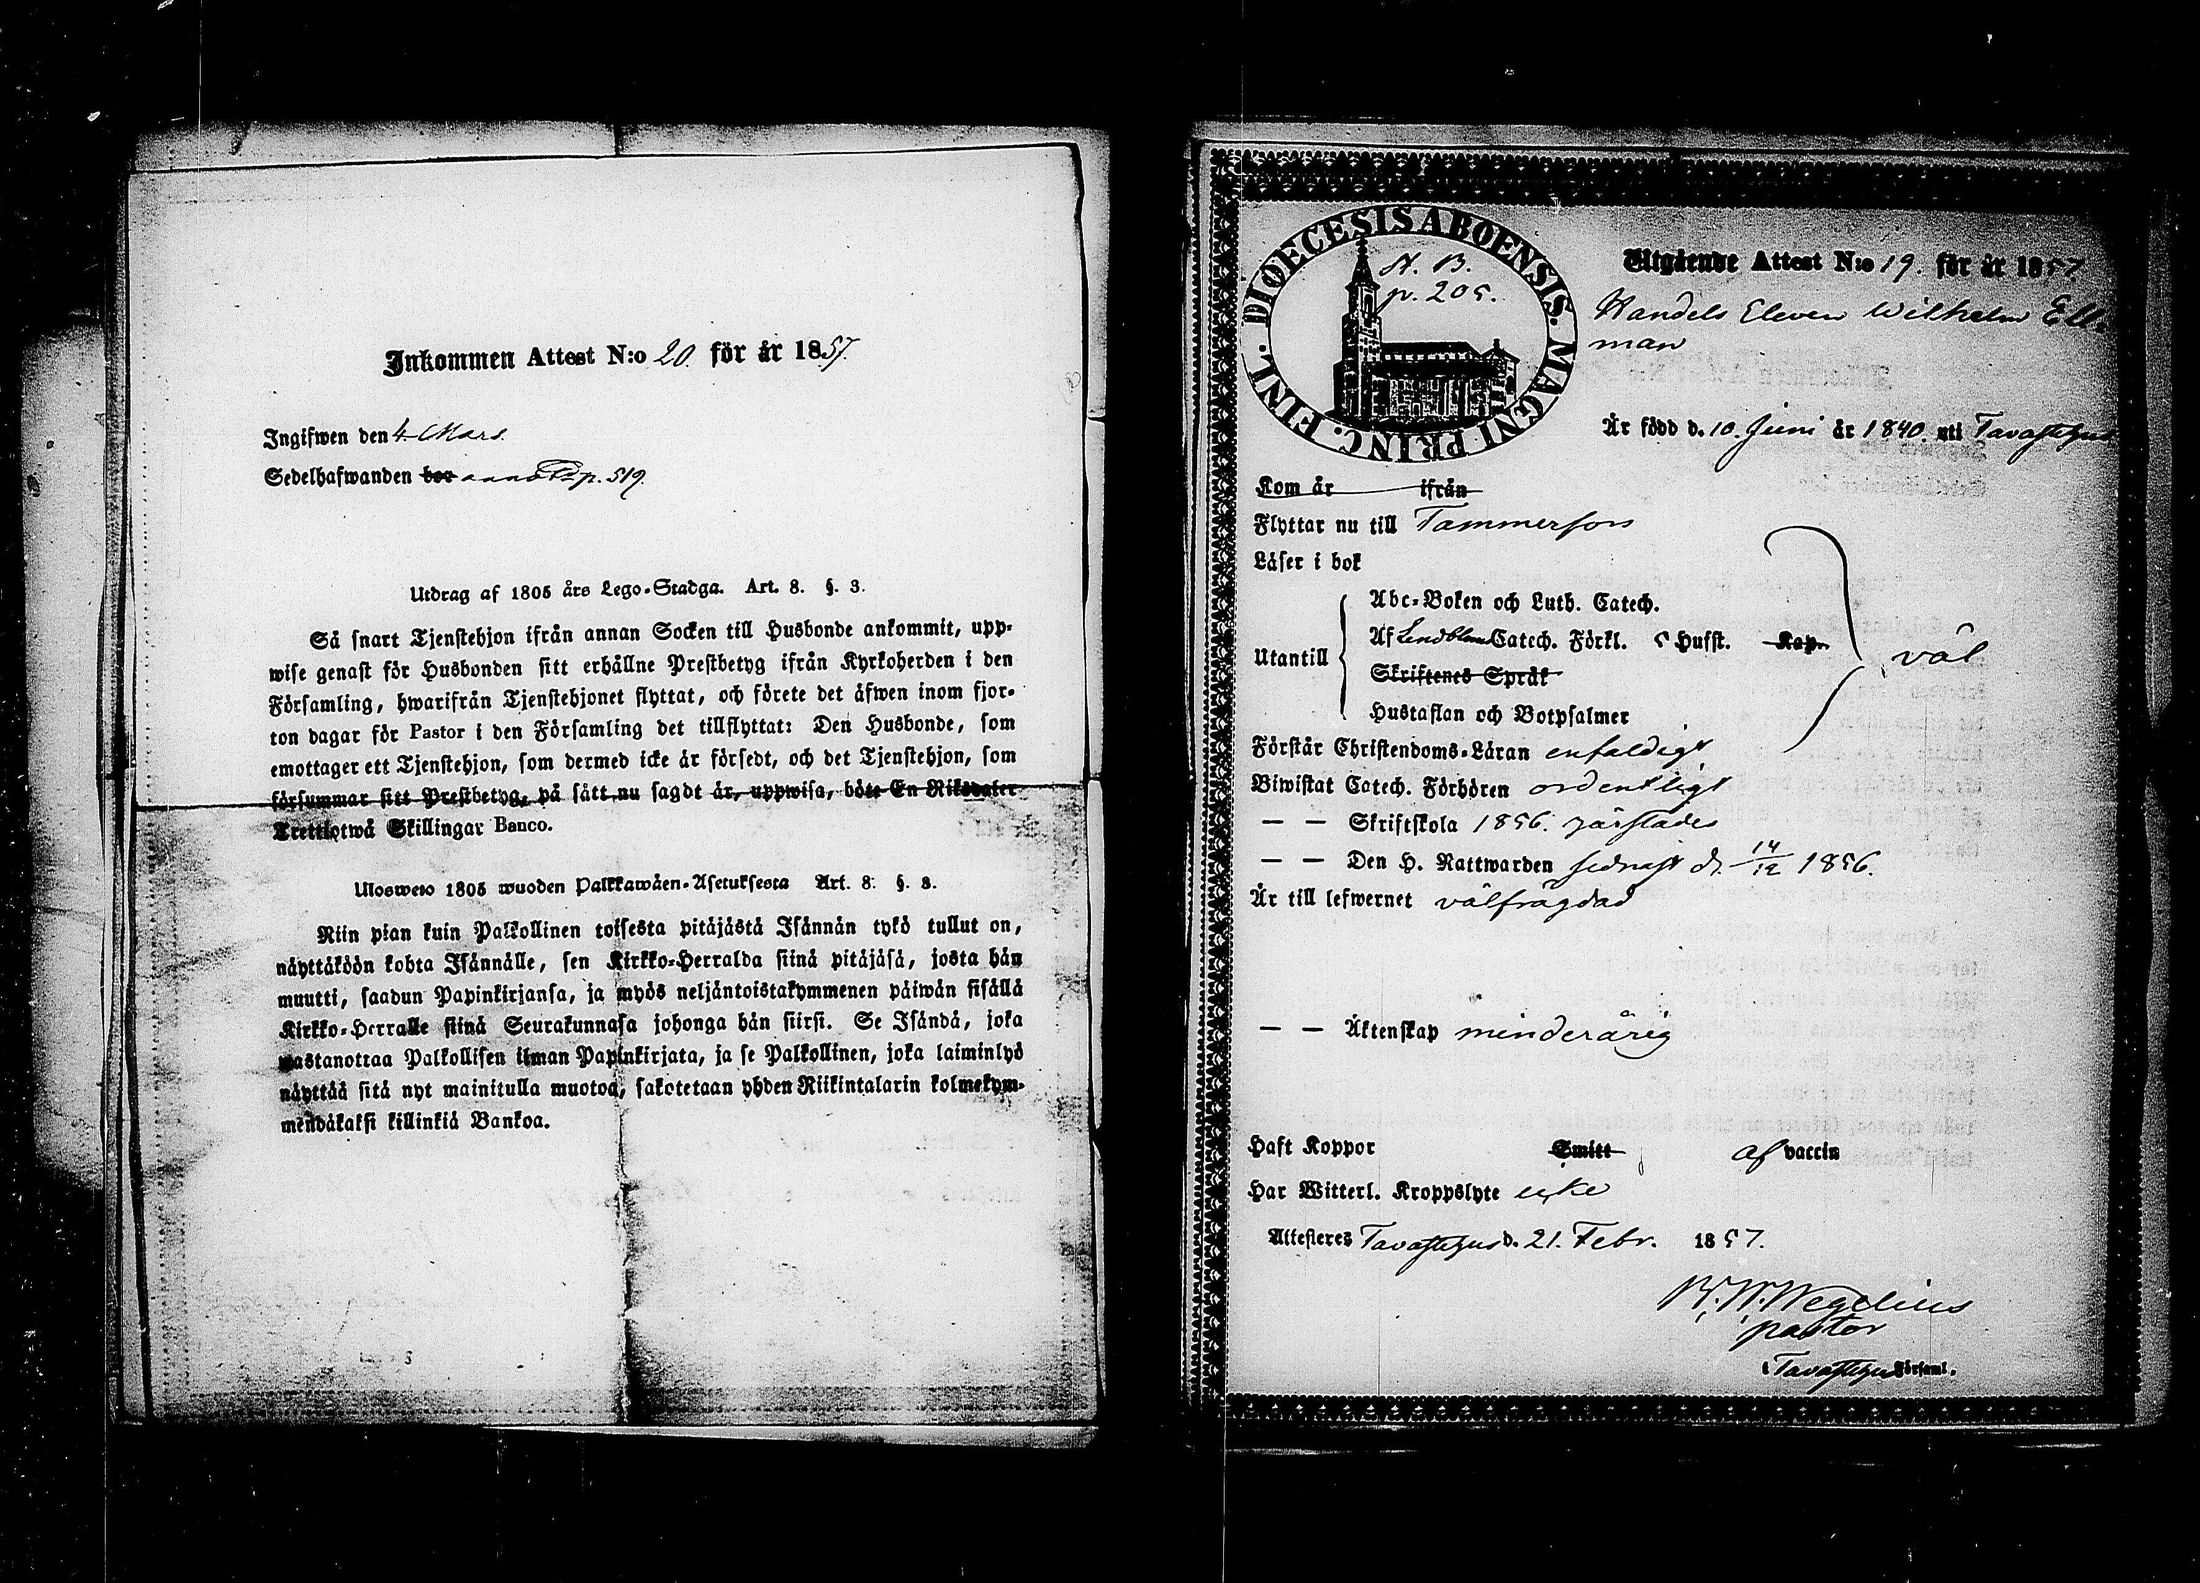 Inkommen Attest N:o 20. för år 1857.
Ingifwen den 4. Mars.
Sedelhafwanden bor p. 519.
Utdrag af 1805 års Lego-Stadga. Art. 8. §. 3.
Så snart Tjenstehjon ifrån annan Socken till Husbonde ankommit, upp-
wise genast för Husbonden sitt erhållne Prestbetyg ifrån Kyrkoherden i den
Församling, hwarifrån Tjenstehjonet flyttat, och förete det äfwen inom fjor-
ton dagar för Pastor i den Församling det tillflyttat: Den Husbonde, som
emottager ett Tjenstehjon, som dermed icke är försedt, och det Tjenstehjon, som
försummar sitt Prestbetyg, på sätt nu sagdt är, uppwisa, böte En Riksdaler
Trettiotwå Skillingar Banco.
Uloswето 1805 wuoden Palkkawäen-Asetuksesta Art. 8. §. 3.
Niin pian kuin Palkollinen toisesta pitäjästä Isännän tykö tullut on,
näyttäköön kohta Isännälle, sen Kirkko-Herralda siinä pitäjäsä, josta hän
muutti, saadun Papinkirjansa, ja myös neljäntoistakymmenen päiwän sisällä
Kirkko-Herralle siinä Seurakunnasa johonga hän siirsi. Se Isändä, joka
wastanottaa Palkollisen ilman Papinkirjata, ja se Palkollinen, joka laiminlyö
näyttää sitä nyt mainitulla muotoa, sakotetaan yhden Riikintalarin kolmekym-
mendäkaksi killinkiä Bankoa.
DIOECESIS ABOENSIS. MAGNI PRINC. FINL.
N. B.
p. 205.
Utgående Attest N:o 19. för år 1857
Handels Eleven Wilhelm Ell-
man
Är född d. 10. Juni år 1840. uti Tavastehus
Kom år ifrån
Flyttar nu till Tammerfors
Läser i bok
Utantill
Abc-Boken och Luth. Catech.
Af Lindbloms Catech. Förkl. 5 Hufst. Kap.
Skriftenes Språk
Hustaflan och Botpsalmer
väl
Förstår Christendoms-Läran enfaldigt
Biwistat Catech. Förhören ordentligt
— — Skriftskola 1856. härstädes
— — Den H. Nattwarden sednast d. 14/12 1856.
Är till lefwernet välfrägdad
— — Äktenskap minderårig
Haft Koppor Smitt af vaccin
Har Witterl. Kroppslyte icke
Attesteres Tavastehus d. 21. Febr. 1857.
Wegelius
pastor
i Tavastehus Församl.